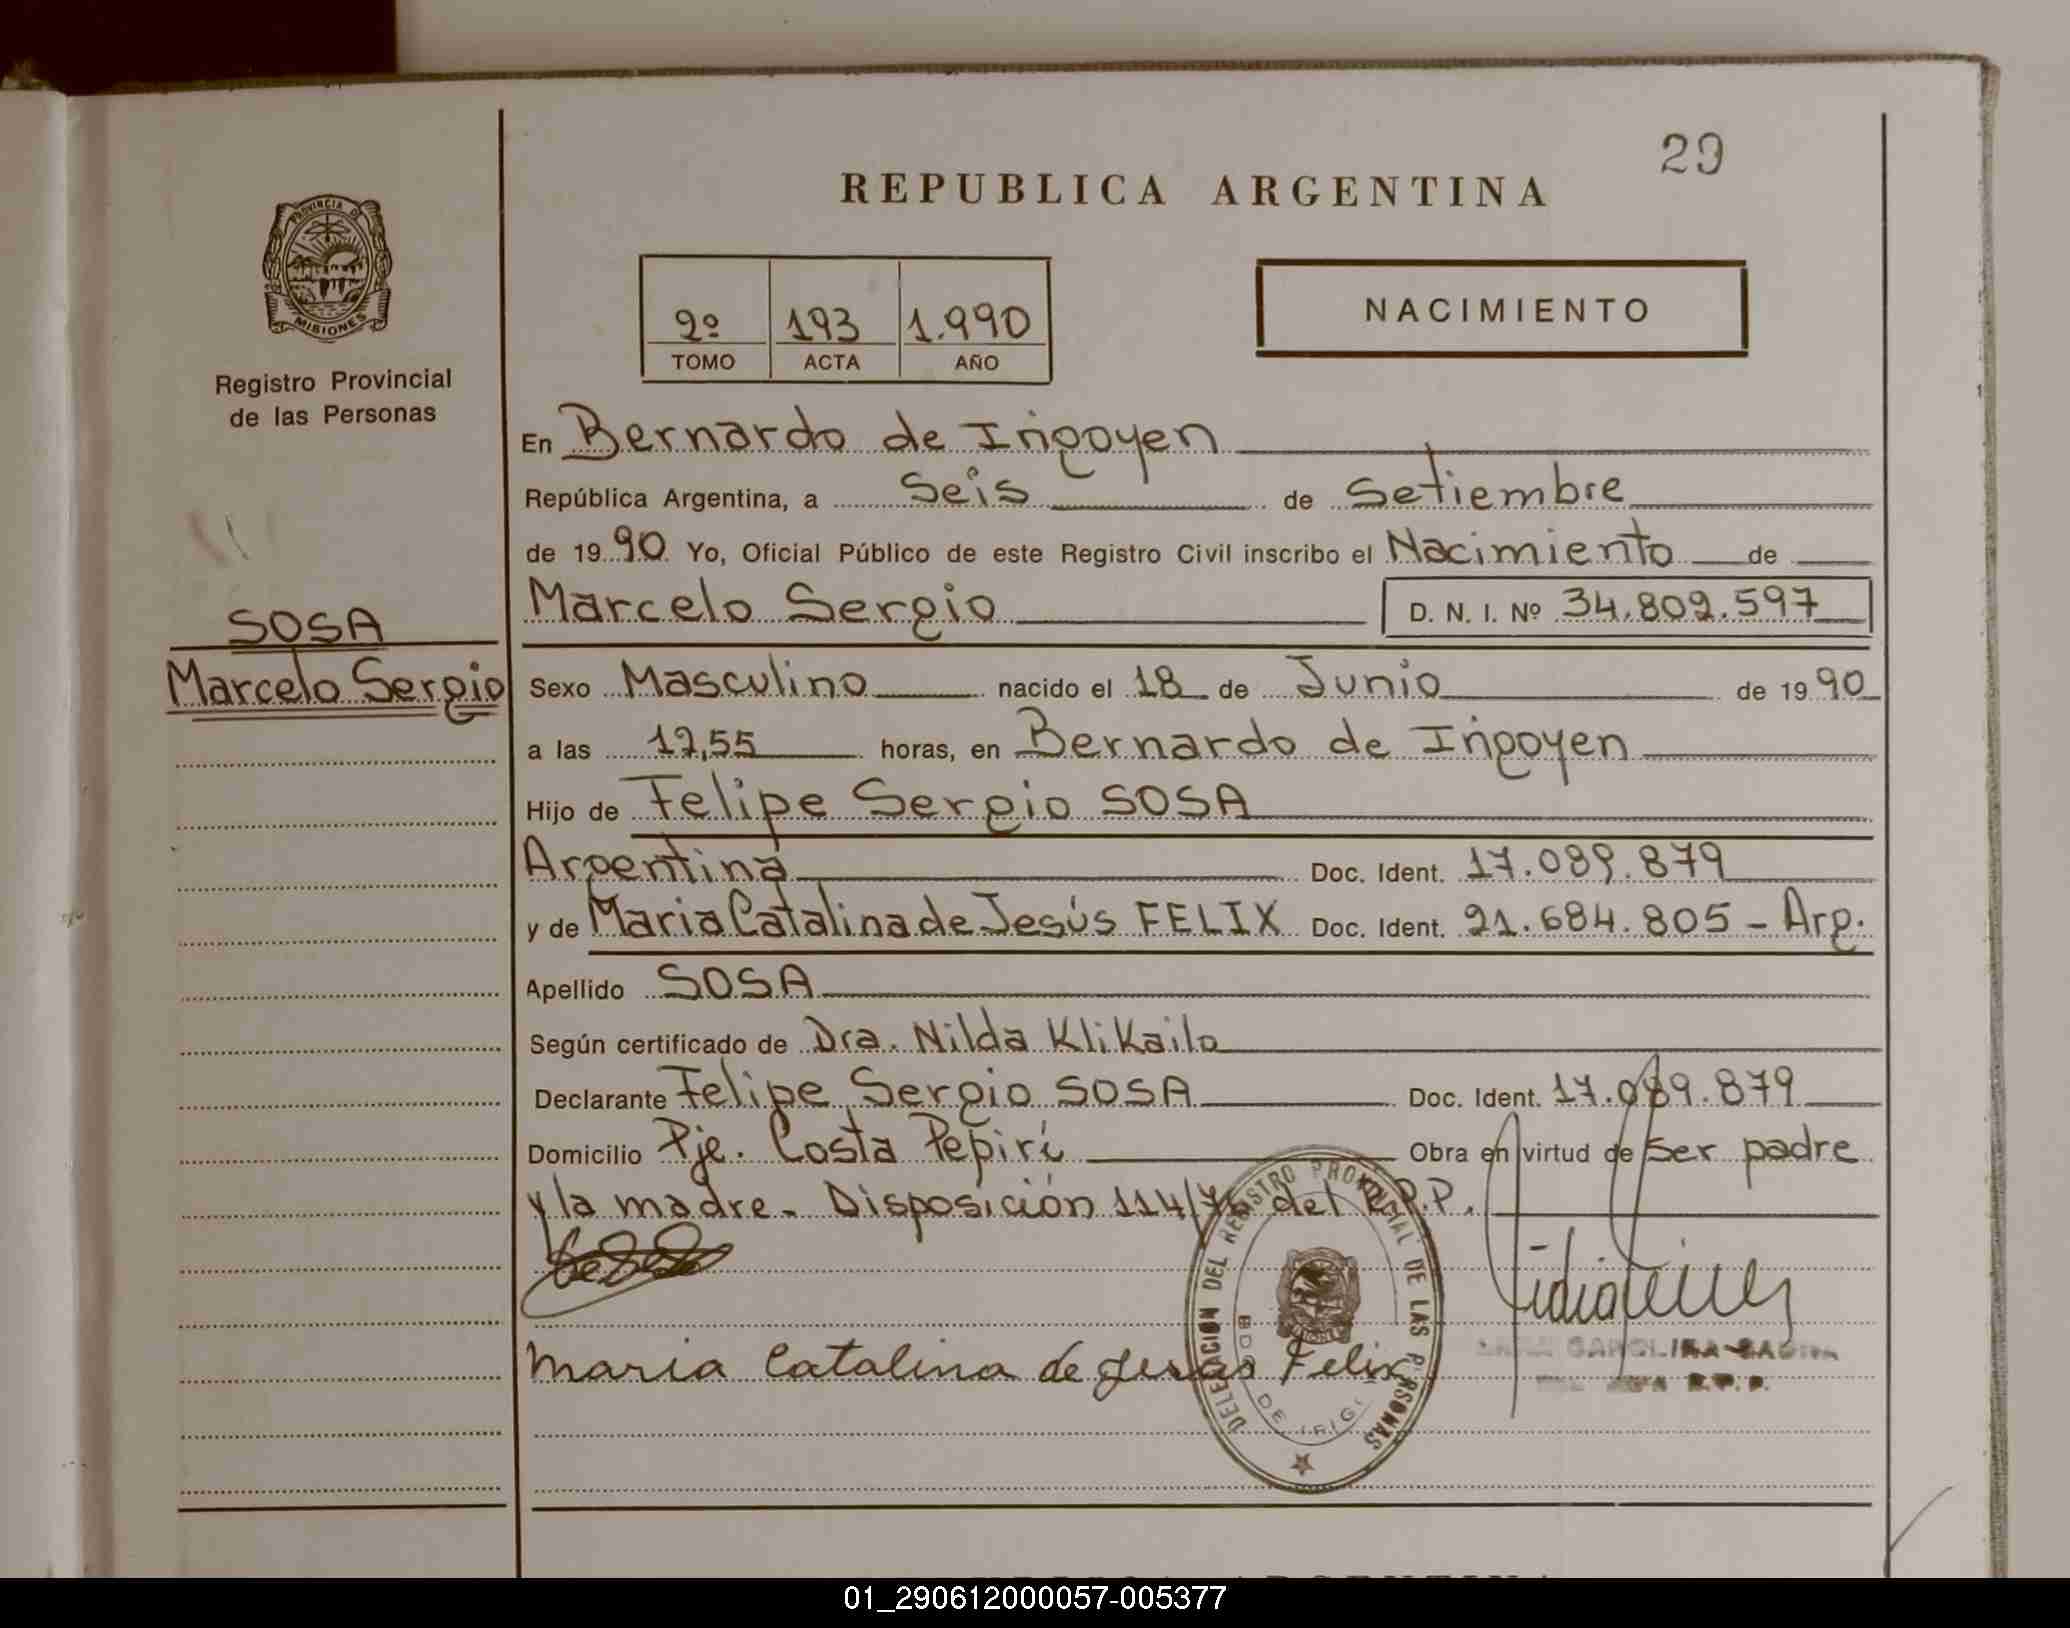 29
REPUBLICA ARGENTINA
PROVINCIA D
MISIONES
Registro Provincial
de las Personas
2º 193 1.990
TOMO ACTA AÑO
NACIMIENTO
En Bernardo de Irigoyen
República Argentina, a Seis de Setiembre
de 1990 Yo, Oficial Público de este Registro Civil inscribo el Nacimiento de
Marcelo Sergio D. N. I. Nº 34.809.597
SOSA
Marcelo Sergio
Sexo Masculino nacido el 18 de Junio de 1990
a las 12,55 horas, en Bernardo de Irigoyen
Hijo de Felipe Sergio SOSA
Argentina Doc. Ident. 17.089.879
y de Maria Catalina de Jesús FELIX Doc. Ident. 21.684.805 - Arg.
Apellido SOSA
Según certificado de Dra. Nilda Klikailo
Declarante Felipe Sergio SOSA Doc. Ident. 17.089.879
Domicilio Pje. Costa Pepirí Obra en virtud de ser padre
y la madre. Disposición 114/76 del R.P.P.
Maria Catalina de Jesus Felix
DELEGACION DEL REGISTRO PROVINCIAL DE LAS PERSONAS
BDO DE IRIGO
CAROLINA
R.P.P.
01_290612000057-005377